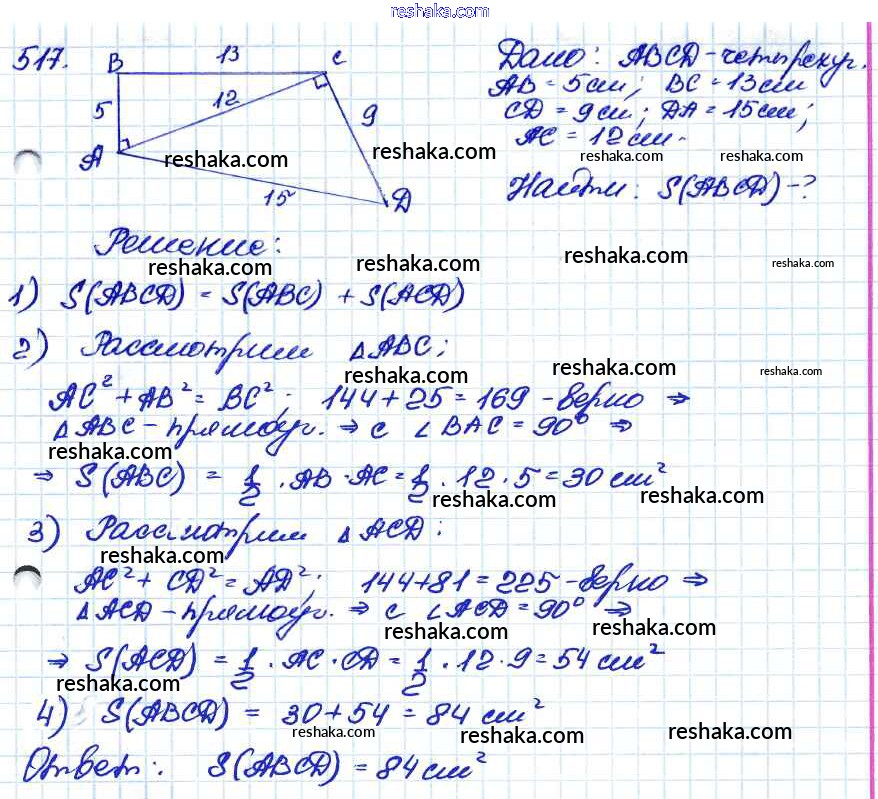 reshaka.com
517. B 13 C
5 12 9
A 15 D
Дано: ABCD-четырехуг.
AB = 5см; BC = 13см
CD = 9см; DA = 15см;
AC = 12см.
reshaka.com reshaka.com reshaka.com reshaka.com
Найти: S(ABCD)-?
Решение:
reshaka.com reshaka.com reshaka.com reshaka.com
1) S(ABCD) = S(ABC) + S(ACD)
2) Рассмотрим ΔABC;
reshaka.com reshaka.com reshaka.com
AC² + AB² = BC²; 144+25=169 -верно ⇒
ΔABC-прямоуг. ⇒ с ∠BAC = 90° ⇒
reshaka.com
⇒ S(ABC) = 1/2 · AB · AC = 1/2 · 12 · 5 = 30 см²
reshaka.com reshaka.com
3) Рассмотрим ΔACD:
reshaka.com
AC² + CD² = AD²; 144+81=225 -верно ⇒
ΔACD-прямоуг. ⇒ с ∠ACD = 90° ⇒
reshaka.com reshaka.com
⇒ S(ACD) = 1/2 · AC · CD = 1/2 · 12 · 9 = 54 см²
reshaka.com
4) S(ABCD) = 30+54 = 84 см²
reshaka.com reshaka.com reshaka.com
Ответ: S(ABCD) = 84 см²